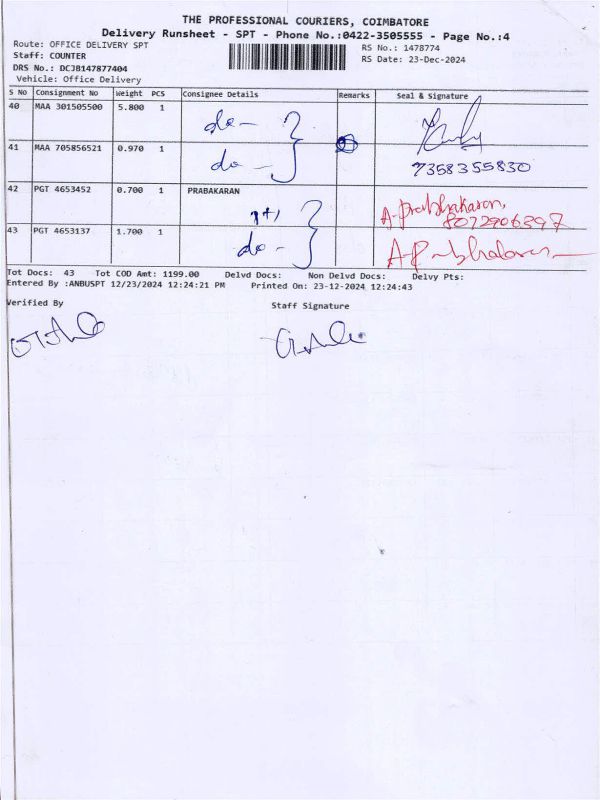 THE PROFESSIONAL COURIERS, COIMBATORE
Delivery Runsheet - SPT - Phone No.:0422-3505555 - Page No.:4
Route: OFFICE DELIVERY SPT
RS No.: 1478774
Staff: COUNTER
RS Date: 23-Dec-2024
DRS No.: DCJB147877404
Vehicle: Office Delivery
S No Consignment No Weight PCS Consignee Details Remarks Seal & Signature
40 MAA 301505500 5.800 1
do-
41 MAA 705856521 0.970 1
do-
7358355830
42 PGT 4653452 0.700 1 PRABAKARAN
A-Prabhakaran,
8072906397
43 PGT 4653137 1.700 1
do-
Tot Docs: 43 Tot COD Amt: 1199.00 Delvd Docs: Non Delvd Docs: Delvy Pts:
Entered By :ANBUSPT 12/23/2024 12:24:21 PM Printed On: 23-12-2024 12:24:43
Verified By
Staff Signature